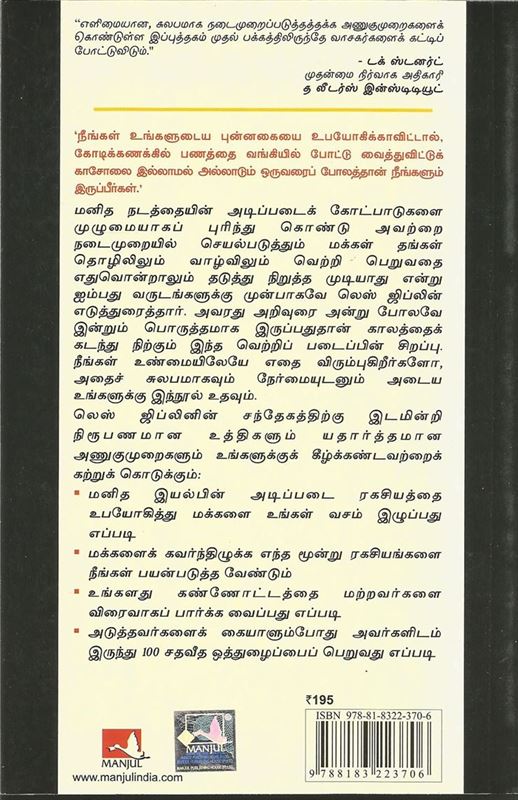 "எளிமையான, சுலபமாக நடைமுறைப்படுத்தத்தக்க அணுகுமுறைகளைக்
கொண்டுள்ள இப்புத்தகம் முதல் பக்கத்திலிருந்தே வாசகர்களைக் கட்டிப்
போட்டுவிடும்."
- டக் ஸ்டனர்ட்
முதன்மை நிர்வாக அதிகாரி
த லீடர்ஸ் இன்ஸ்டிடியூட்
'நீங்கள் உங்களுடைய புன்னகையை உபயோகிக்காவிட்டால்,
கோடிக்கணக்கில் பணத்தை வங்கியில் போட்டு வைத்துவிட்டுக்
காசோலை இல்லாமல் அல்லாடும் ஒருவரைப் போலத்தான் நீங்களும்
இருப்பீர்கள்.'
மனித நடத்தையின் அடிப்படைக் கோட்பாடுகளை
முழுமையாகப் புரிந்து கொண்டு அவற்றை
நடைமுறையில் செயல்படுத்தும் மக்கள் தங்கள்
தொழிலிலும் வாழ்விலும் வெற்றி பெறுவதை
எதுவொன்றாலும் தடுத்து நிறுத்த முடியாது என்று
ஐம்பது வருடங்களுக்கு முன்பாகவே லெஸ் ஜிப்லின்
எடுத்துரைத்தார். அவரது அறிவுரை அன்று போலவே
இன்றும் பொருத்தமாக இருப்பதுதான் காலத்தைக்
கடந்து நிற்கும் இந்த வெற்றிப் படைப்பின் சிறப்பு.
நீங்கள் உண்மையிலேயே எதை விரும்புகிறீர்களோ,
அதைச் சுலபமாகவும் நேர்மையுடனும் அடைய
உங்களுக்கு இந்நூல் உதவும்.
லெஸ் ஜிப்லினின் சந்தேகத்திற்கு இடமின்றி
நிரூபணமான உத்திகளும் யதார்த்தமான
அணுகுமுறைகளும் உங்களுக்குக் கீழ்க்கண்டவற்றைக்
கற்றுக் கொடுக்கும்:
▪ மனித இயல்பின் அடிப்படை ரகசியத்தை
உபயோகித்து மக்களை உங்கள் வசம் இழுப்பது
எப்படி
▪ மக்களைக் கவர்ந்திழுக்க எந்த மூன்று ரகசியங்களை
நீங்கள் பயன்படுத்த வேண்டும்
▪ உங்களது கண்ணோட்டத்தை மற்றவர்களை
விரைவாகப் பார்க்க வைப்பது எப்படி
▪ அடுத்தவர்களைக் கையாளும்போது அவர்களிடம்
இருந்து 100 சதவீத ஒத்துழைப்பைப் பெறுவது எப்படி
₹195
ISBN 978-81-8322-370-6
9 788183 223706
MANJUL
MANJUL
www.manjulindia.com